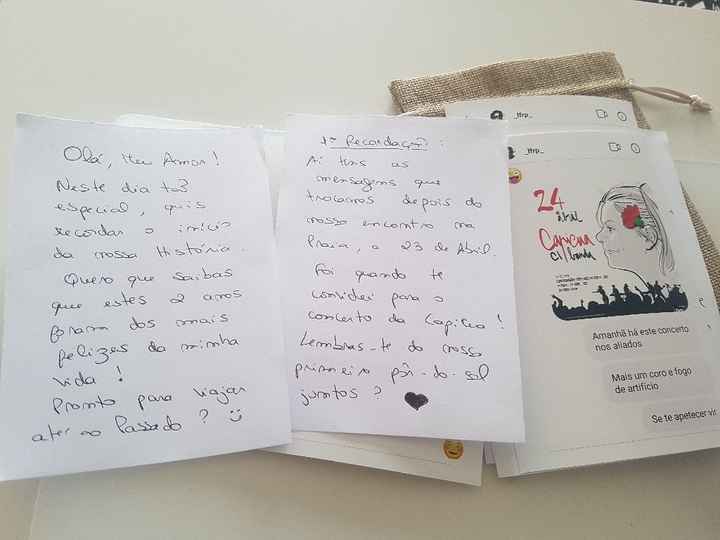 Olá, Meu Amor!
Neste dia tão
especial, quis
recordar o início
da nossa História.
Quero que saibas
que estes 2 anos
foram dos mais
felizes da minha
vida!
Pronto para viajar
até ao Passado?
1ª Recordação:
Aí tens as
mensagens que
trocamos depois do
nosso encontro na
Praia, a 23 de Abril.
Foi quando te
convidei para o
concerto da Capicua!
Lembras-te do nosso
primeiro pôr-do-sol
juntos?
24
abril
Capicua
c/ banda
Amanhã há este concerto
nos aliados
Mais um coro e fogo
de artifício
Se te apetecer vir